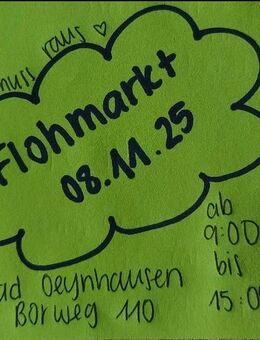 muss raus ♡
Flohmarkt
08.11.25
ab
9:00
bis
15:0
ad Oeynhausen
Borweg 110